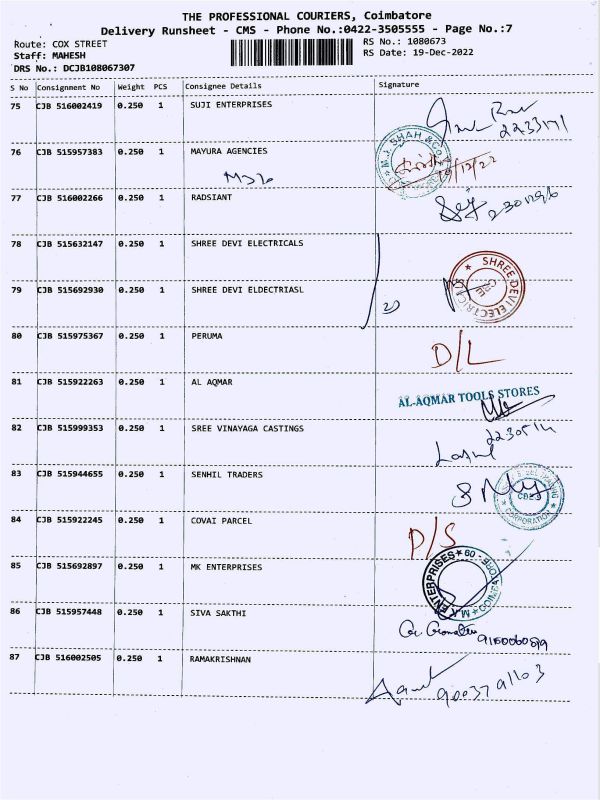 THE PROFESSIONAL COURIERS, Coimbatore
Delivery Runsheet - CMS - Phone No.:0422-3505555 - Page No.:7
Route: COX STREET
RS No.: 1080673
Staff: MAHESH
RS Date: 19-Dec-2022
DRS No.: DCJB108067307
S No Consignment No Weight PCS Consignee Details Signature
75 CJB 516002419 0.250 1 SUJI ENTERPRISES
2233171
76 CJB 515957383 0.250 1 MAYURA AGENCIES
M.J. SHAH & Co
19/12/22
77 CJB 516002266 0.250 1 RADSIANT
2301296
78 CJB 515632147 0.250 1 SHREE DEVI ELECTRICALS
79 CJB 515692930 0.250 1 SHREE DEVI ELDECTRIASL
20
SHREE DEVI ELECTRICALS
CBE
80 CJB 515975367 0.250 1 PERUMA
D/L
81 CJB 515922263 0.250 1 AL AQMAR
AL-AQMAR TOOLS STORES
82 CJB 515999353 0.250 1 SREE VINAYAGA CASTINGS
2230514
83 CJB 515944655 0.250 1 SENHIL TRADERS
CORPORATION
84 CJB 515922245 0.250 1 COVAI PARCEL
D/S
85 CJB 515692897 0.250 1 MK ENTERPRISES
M K ENTERPRISES
86 CJB 515957448 0.250 1 SIVA SAKTHI
87 CJB 516002505 0.250 1 RAMAKRISHNAN
9003791103